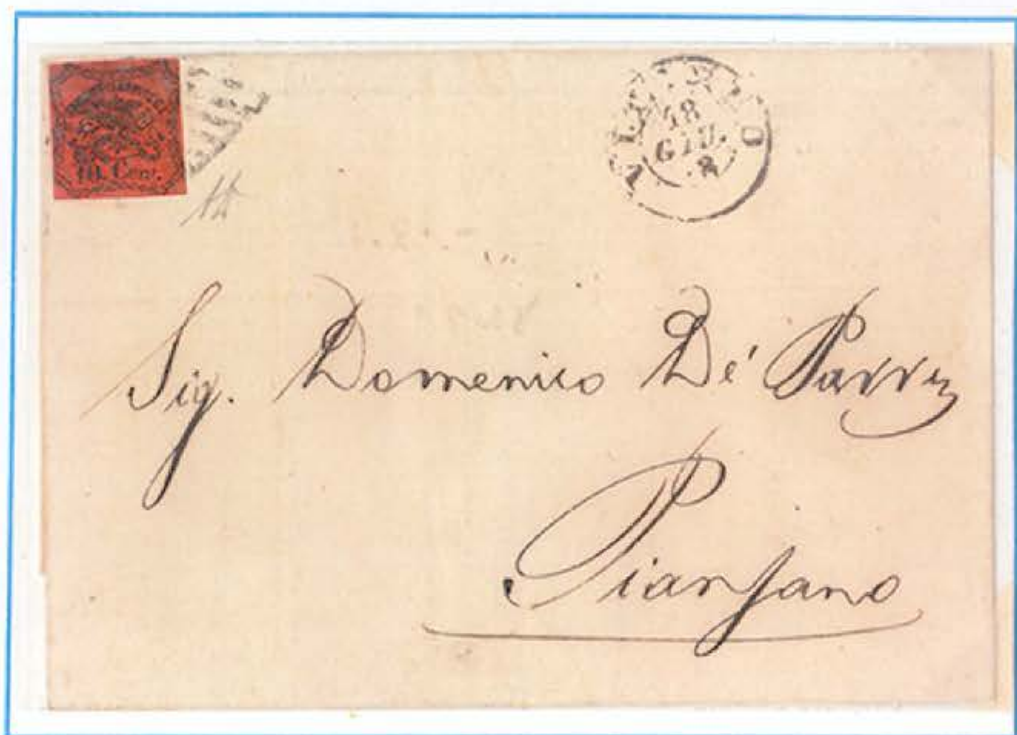 10 Cent.
18
GIU.
Sig. Domenico De' Parri
Pianſano